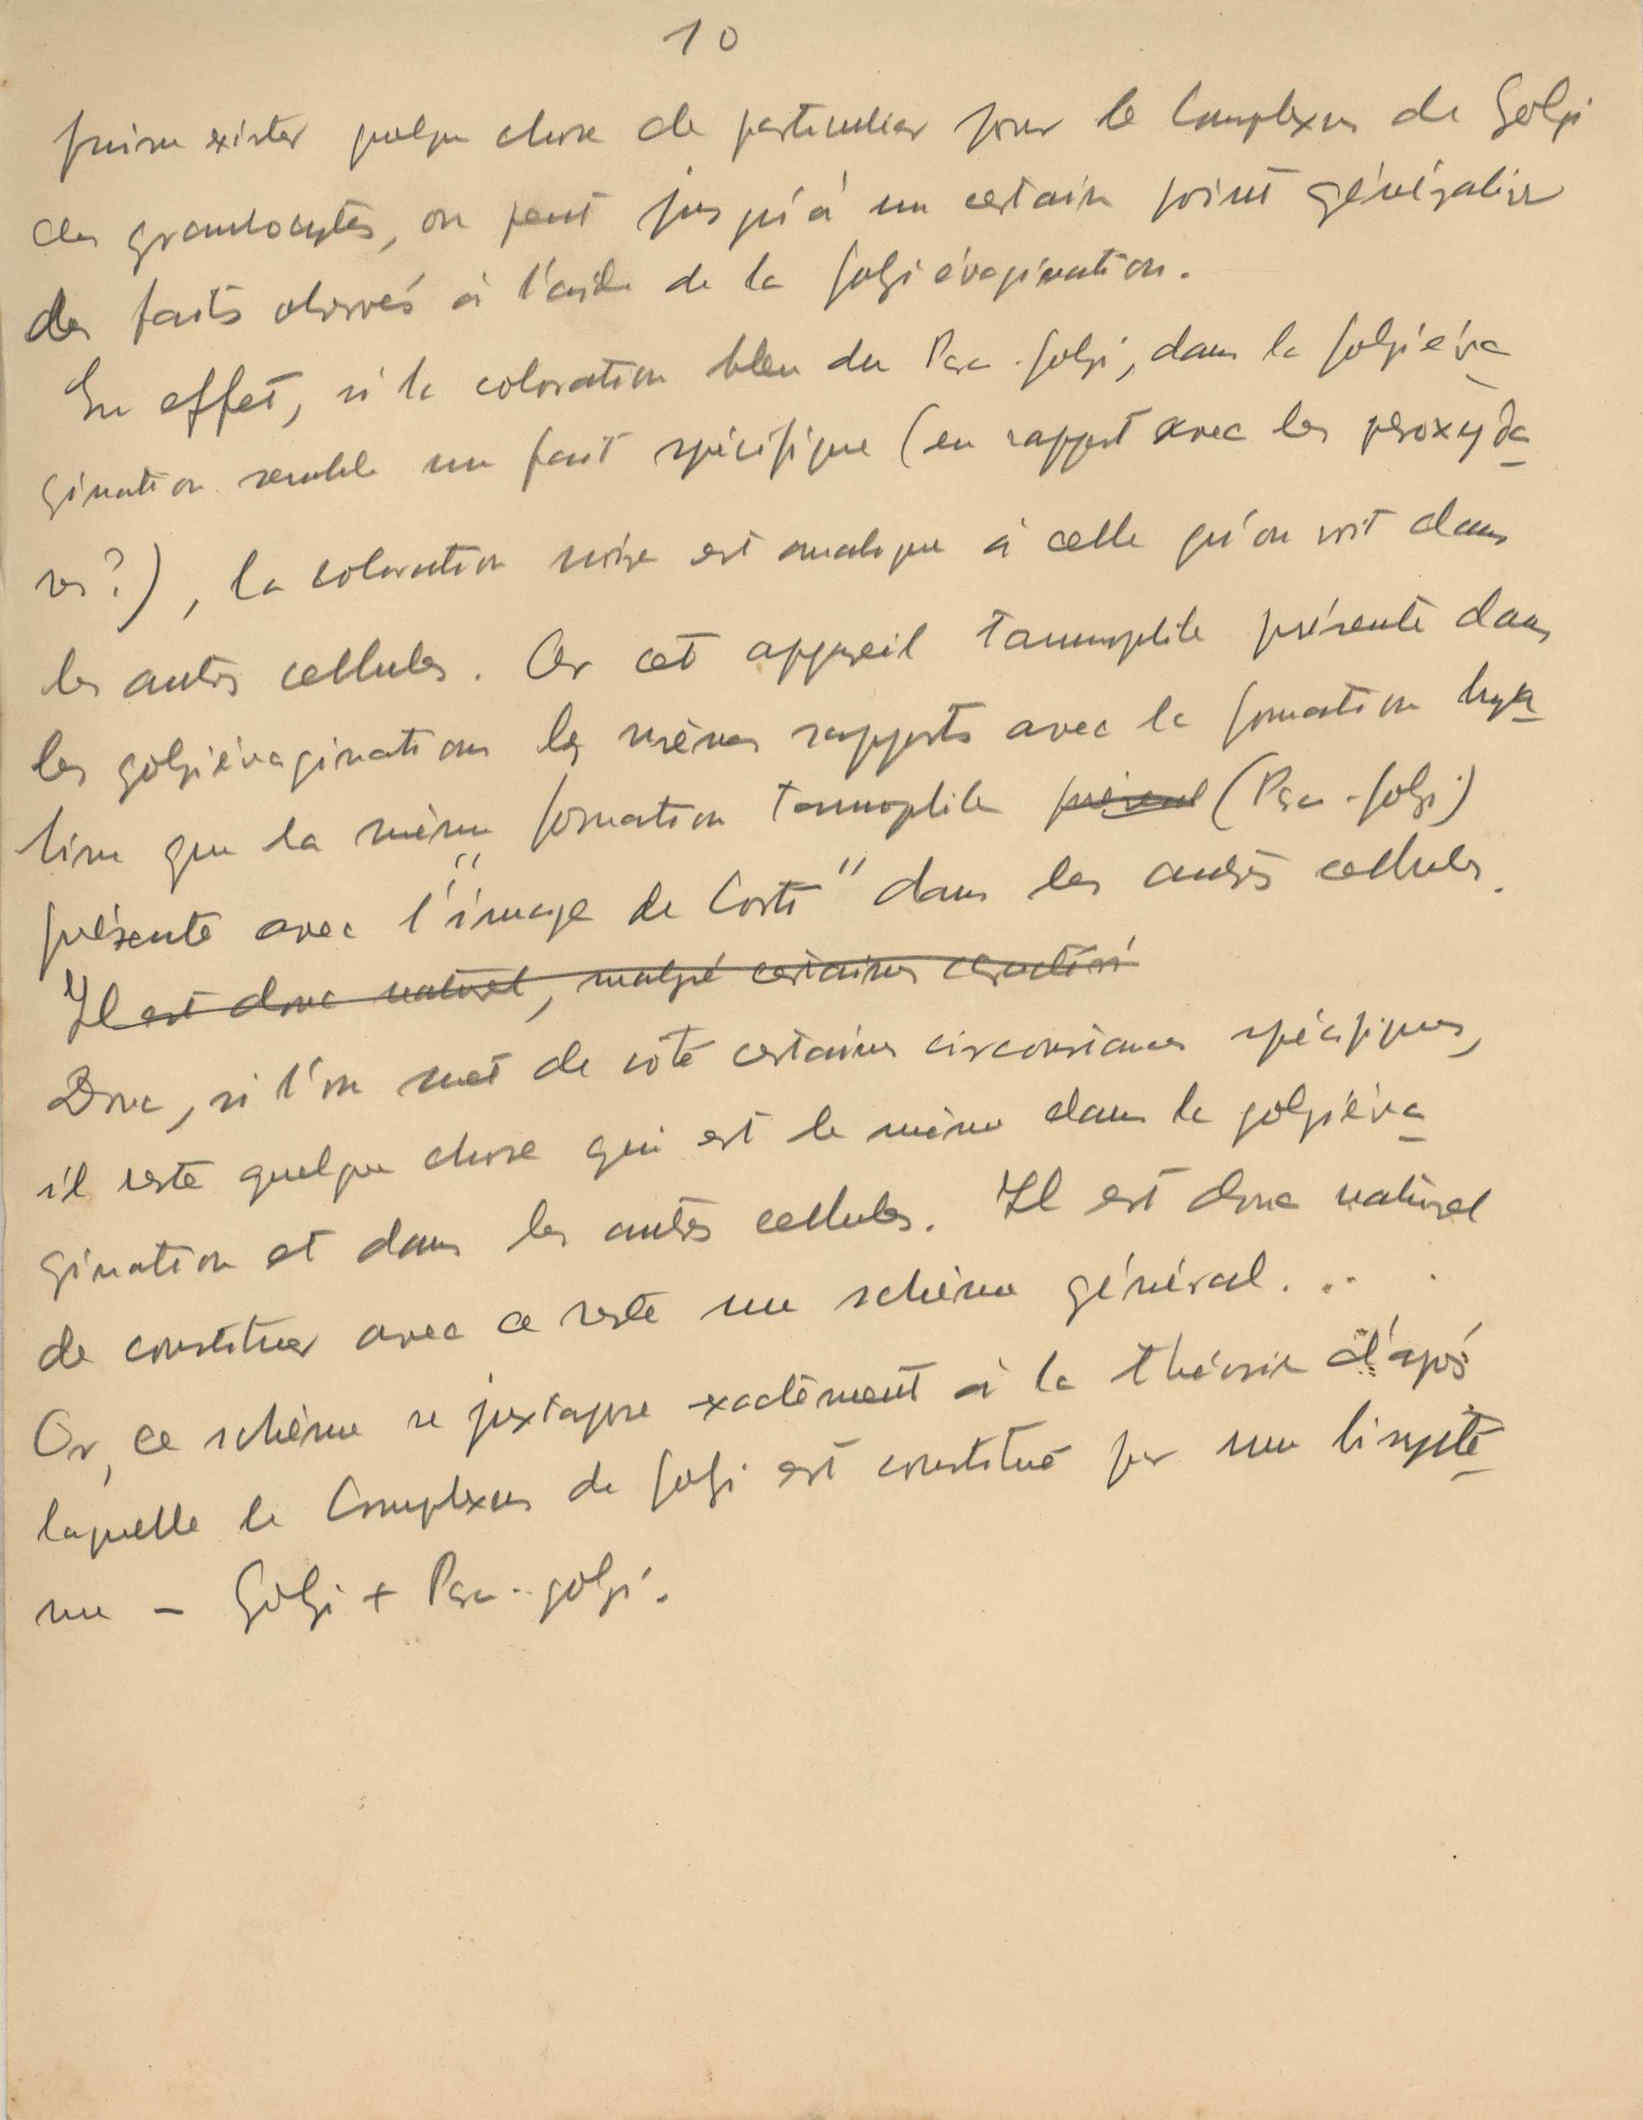 10
puisse exister quelque chose de particulier pour le Complexus de Golgi
des granulocytes, on peut jusqu'à un certain point généraliser
des faits observés à l'aide de la golgiévagination.
En effet, si la coloration bleu du Para-golgi, dans la golgiéva
gination semble un fait spécifique (en rapport avec les peroxyda
ses?), la coloration noire est analogue à celle qu'on voit dans
les autres cellules. Or cet appareil tannophile présente dans
les golgiévaginations les mêmes rapports avec la formation hya
line que la même formation tannophile présent (Para-golgi)
présente avec l'"image de Corti" dans les autres cellules.
Il est donc naturel, malgré certaines caractéri
Donc, si l'on met de coté certaines circonstances spécifiques,
il reste quelque chose qui est le même dans la golgiéva
gination et dans les autres cellules. Il est donc naturel
de constituer avec ce reste un schème général...
Or, ce schème se juxtapose exactement à la théorie d'après
laquelle le Complexus de Golgi est constitué par un
me – Golgi + Para-golgi.